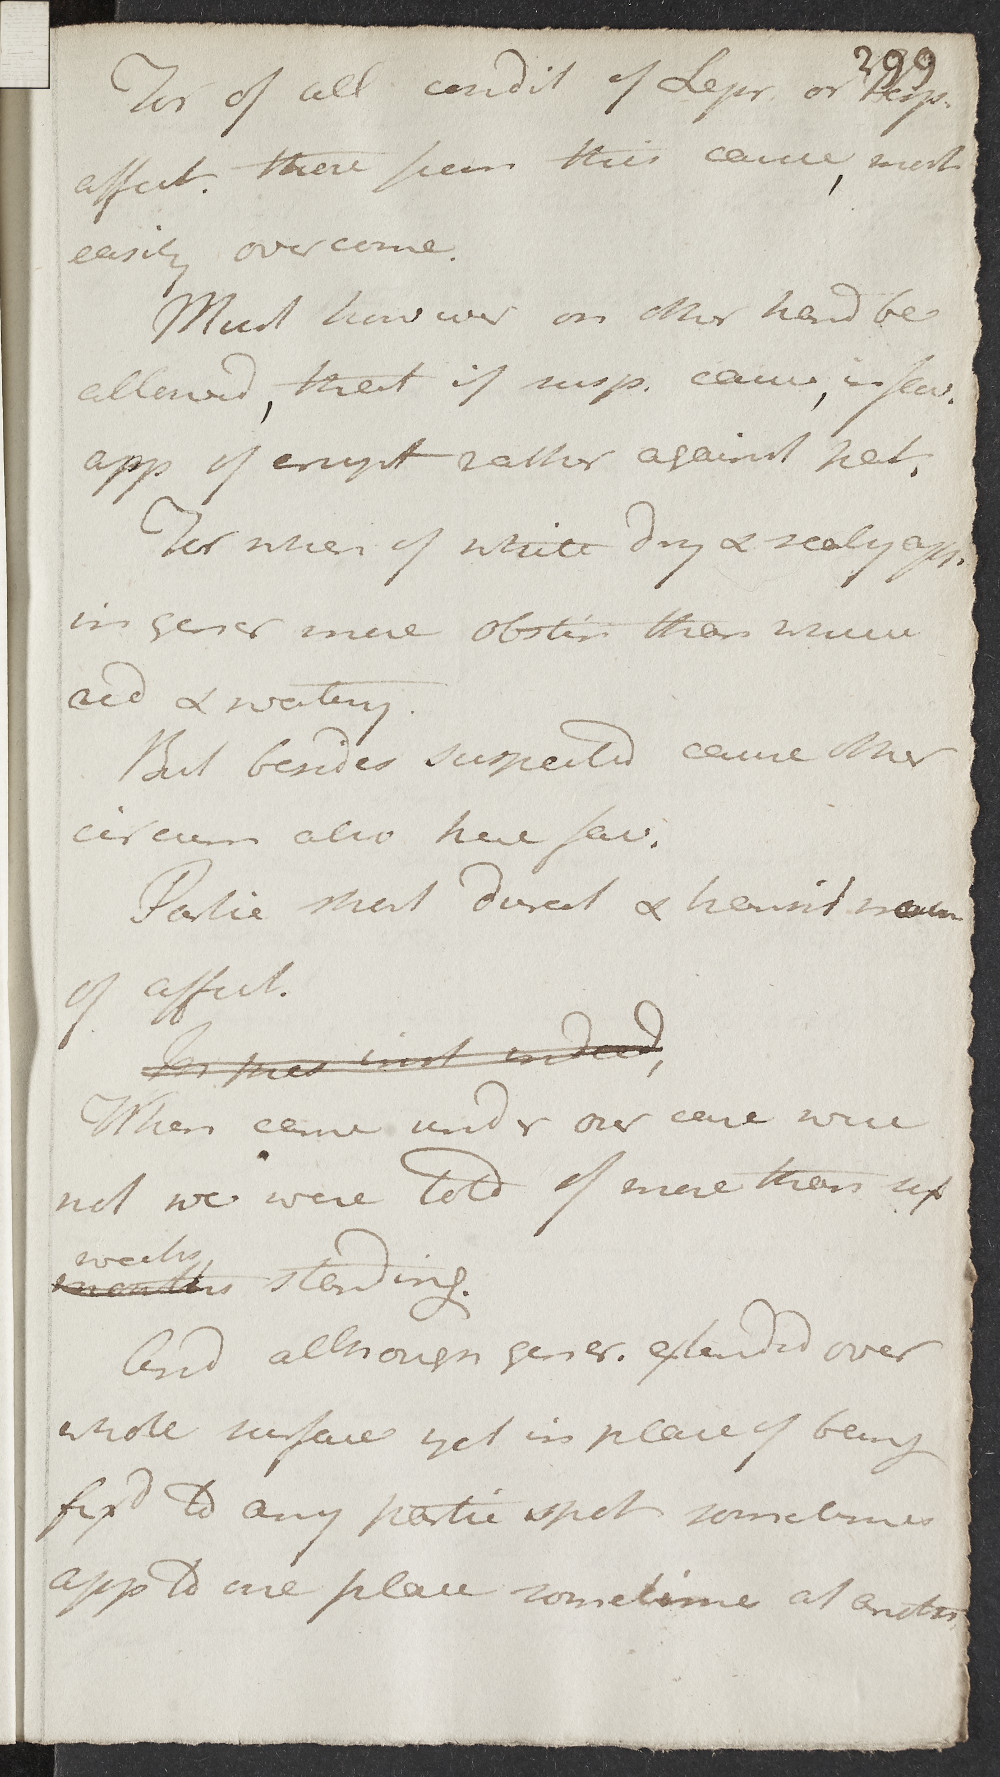 299
For of all condit of Lepr. or Herp.
affect. those from this cause, most
easily overcome.
Must however on other hand be
allowed, that if susp. cause, in fav.
app of erupt rather against pat.
For when of white dry & scaly app.
in gener more obstin than where
red & watery.
But besides suspected cause other
circum also here fav.
Partic short durat & transit
of affect.
In pres inst indeed,
When came under our care were
not we were told of more than six
weeks
months standing.
And although gener. extended over
whole surface yet in place of being
fixd to any partic spot sometimes
app to one place sometimes at anoth